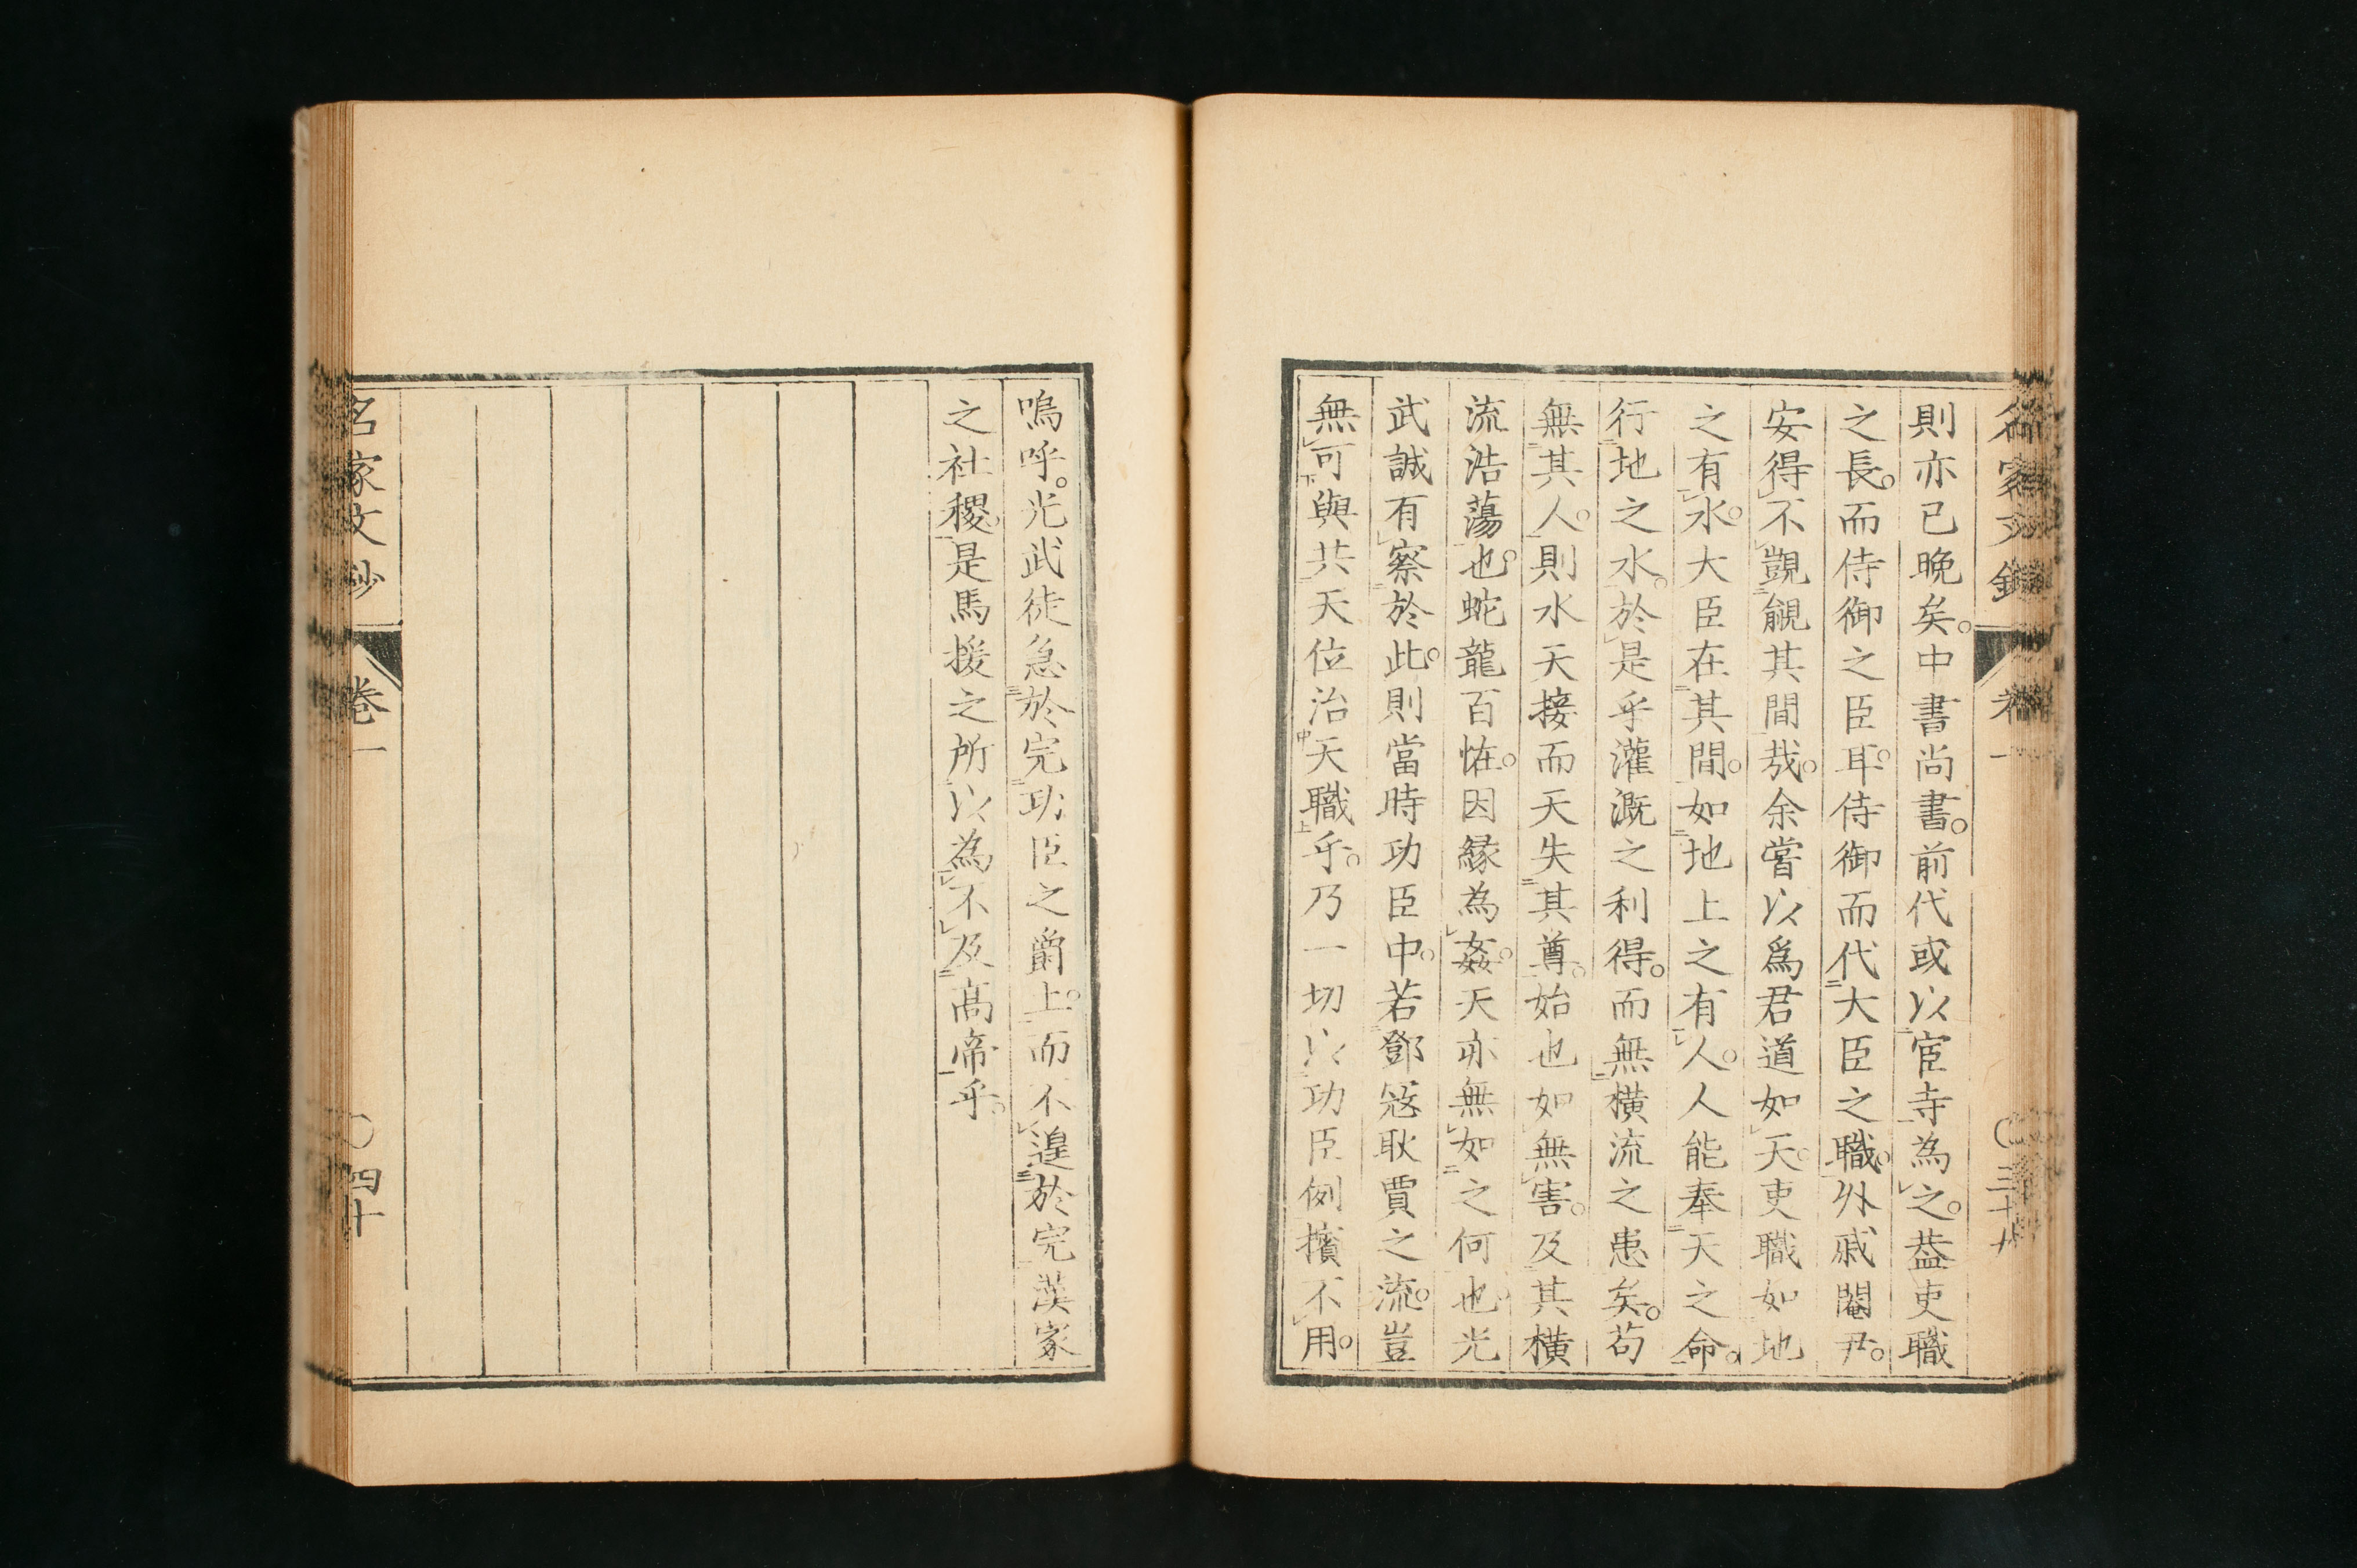 則亦已晚矣。中書尚書。前代或以宦寺為之。葢吏職
之長。而侍御之臣耳。侍御而代大臣之職。外戚閹尹。
安得不覬覦其間哉。余嘗以爲君道如天。吏職如地
之有水。大臣在其間。如地上之有人。人能奉天之命。
行地之水。於是乎灌溉之利得。而無橫流之患矣。苟
無其人。則水天接而天失其尊。始也如無害。及其橫
流浩蕩也。蛇龍百怪。因緣為姦。天亦無如之何也。光
武誠有察於此。則當時功臣中。若鄧寇耿賈之流。豈
無可與共天位治天職乎。乃一切以功臣例擯不用。
嗚呼。光武徒急於完功臣之爵上。而不遑於完漢家
之社稷。是馬援之所以為不及高帝乎。
名家文鈔
卷一
〇四十